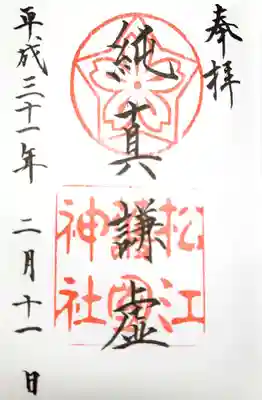 奉拝
純真
謙虚
松江
護國
神社
平成三十一年 二月十一日